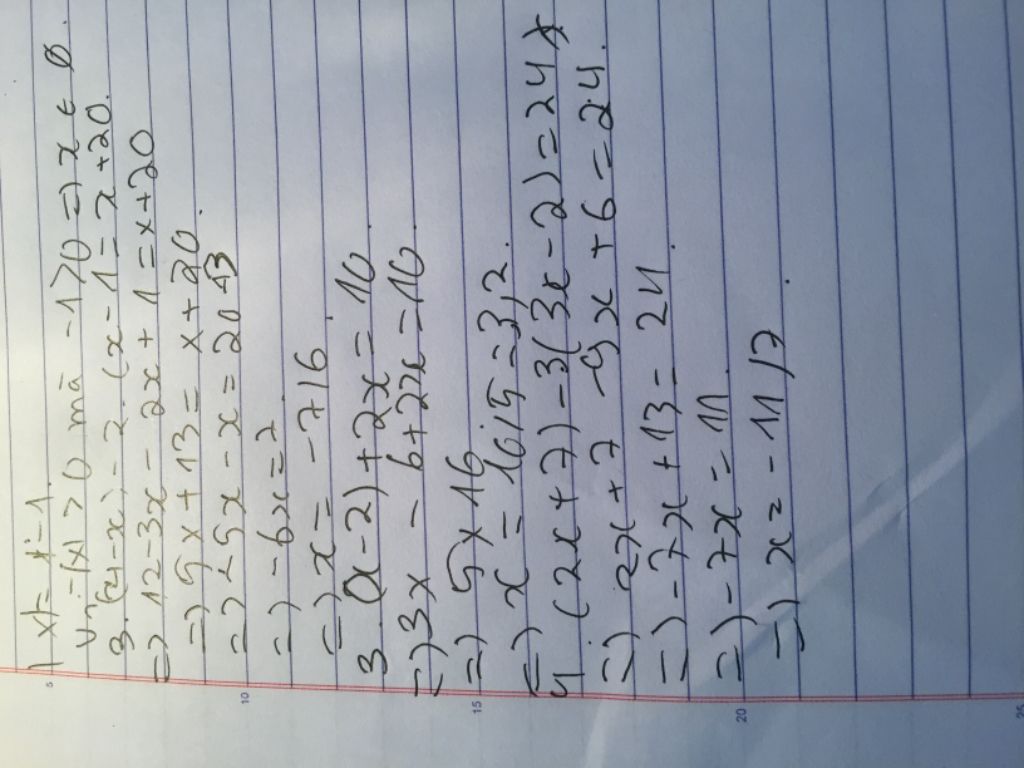 |x| = -1.
vì |x| > 0 mà -1 > 0 => x ∈ ∅
3. (4-x) - 2. (x-1 = x +20.
=> 12-3x - 2x + 1 = x+20
=> 5x + 13 = x+20.
=> -5x - x = 20 13
=> -6x = 7
=> x = -7/6
3. (x-2) + 2x = 10.
=> 3x - 6 + 2x = 10.
=> 5x 16
=> x = 16/5 = 3,2.
4. (2x+7) - 3(3x-2) = 24
=> 2x+7 -9x + 6 = 24.
=> -7x + 13 = 24.
=> -7x = 11.
=> x = -11/7.
5
10
15
20
25